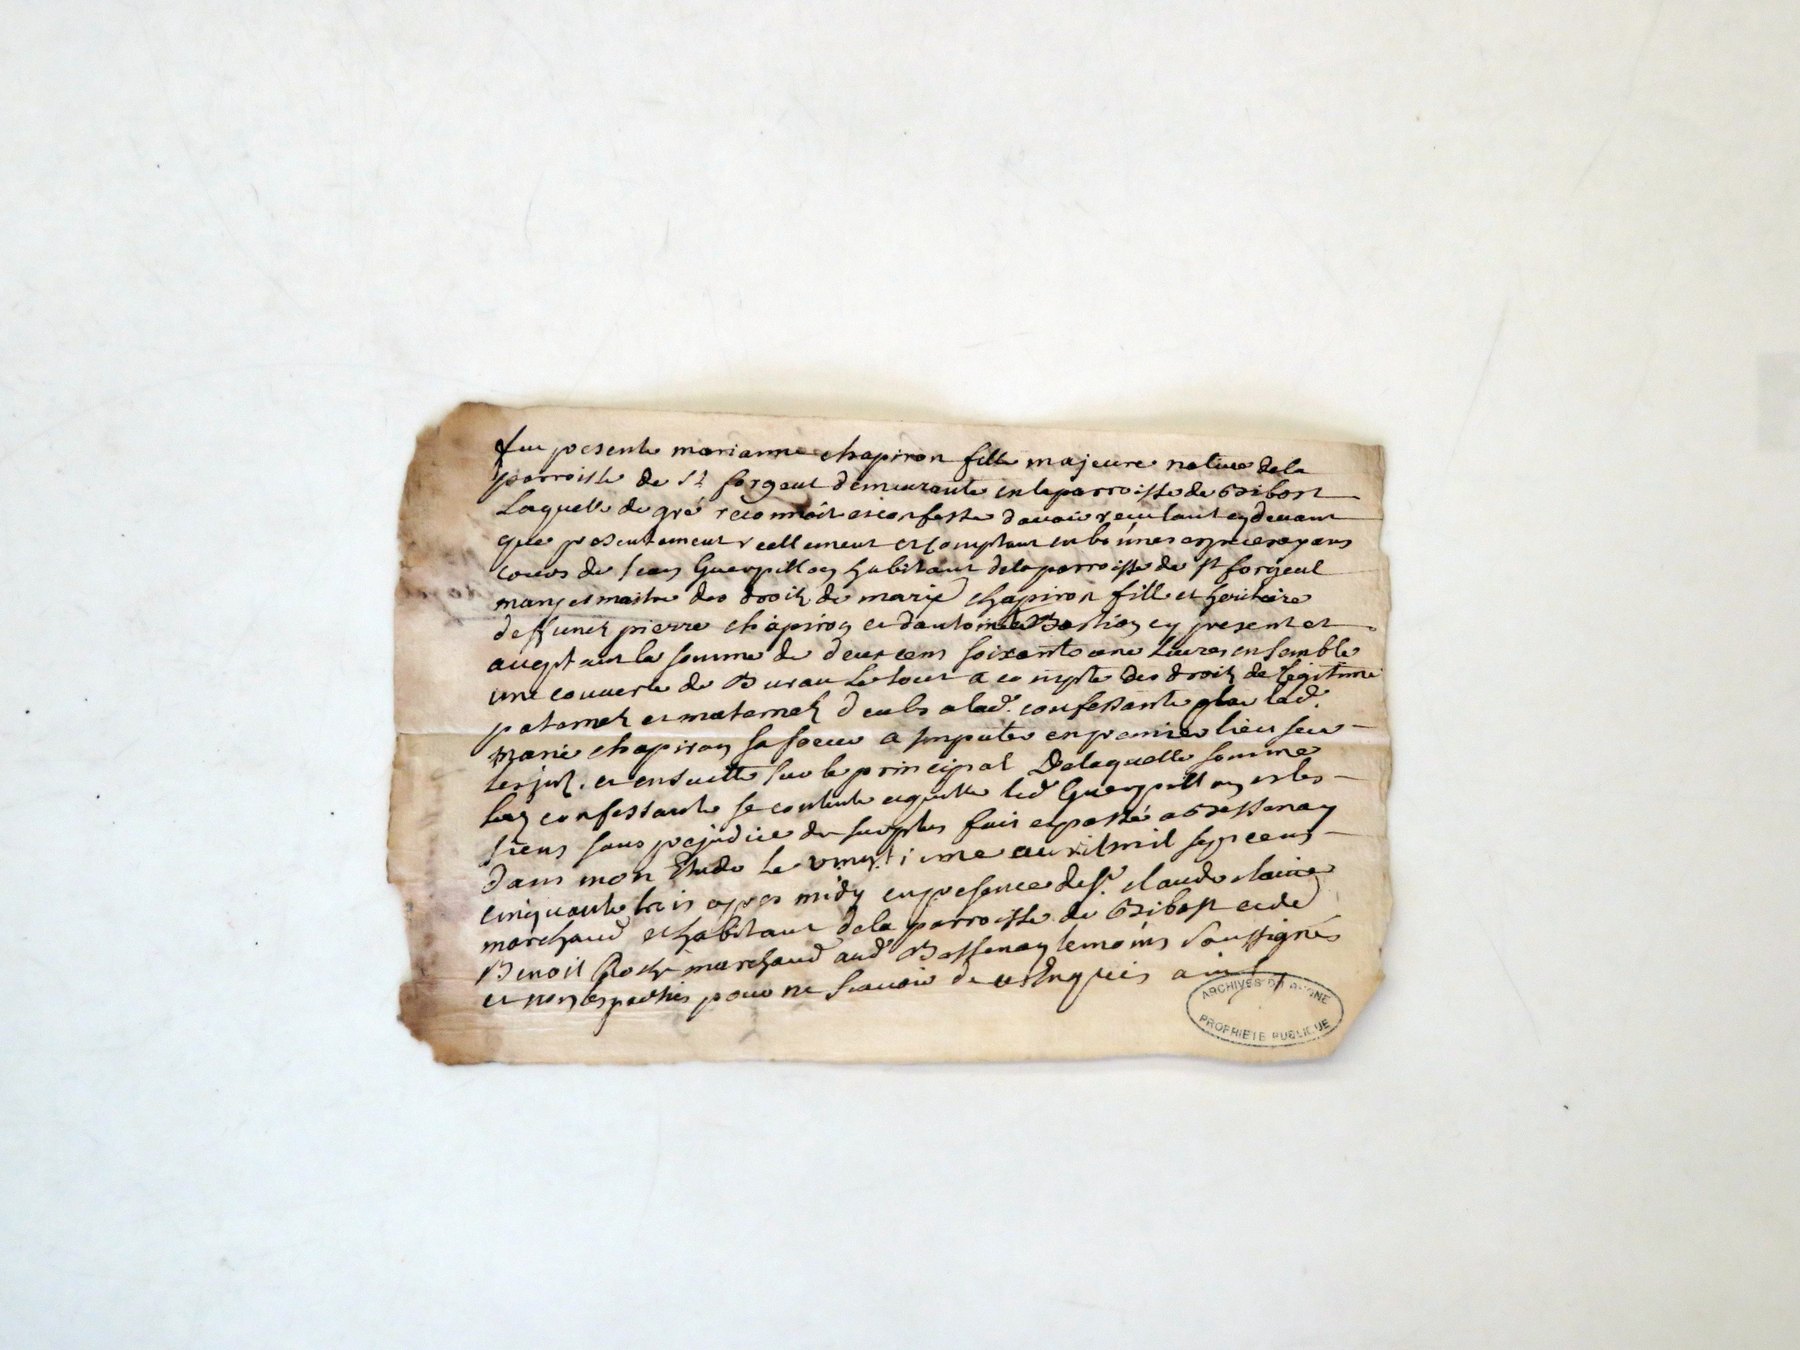 fut presente marianne chapiron fille majeure native dela
parroisse de St forgeul demeurante en la parroisse de Bibost
Laquelle de gré reconnoit et confesse d'avoir reçu tant cy devant
que presentement reellement et comptant en bonnes especes ayans
cours de Jean Guerpillon habitant dela parroisse de St forgeul
mary et maitre des droitz de marie chapiron fille et heritiere
deffunct pierre chapiron et dantoinette Bastion cy present et
acceptant la somme de deux cens soixante une Livres ensemble
une couverte de Bureau Le tout a compte des droitz de legitime
paternelz et maternelz deubs a lad. confessante par lad.
marie chapiron sa soeur a imputer en premier lieu sur
les jntz. et ensuitte sur le principal Delaquelle somme
lad confessante se contente et quitte led Guerpillon et les
siens sans prejudice du surplus fait et passé a Bessenay
dans mon Etude Le vingtieme avril mil sept cens
cinquante trois apres midy en presence de sr. claude claire
marchand et habitant dela parroisse de Bibost et de
Benoit marchand aud Bessenay temoins soussignés
et non les parties pour ne sçavoir de ce Enquis
ARCHIVES DU RHONE
PROPRIETE PUBLIQUE